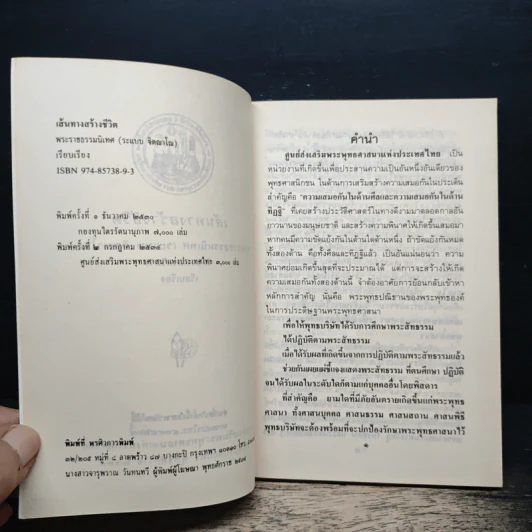 เส้นทางสร้างชีวิต
พระราชธรรมนิเทศ (ระแบบ ฐิตญาโณ)
เรียบเรียง
ISBN 974-85738-9-3
พิมพ์ครั้งที่ ๑ ธันวาคม ๒๕๓๐
กองทุนไตรรัตนานุภาพ ๗,๐๐๐ เล่ม
พิมพ์ครั้งที่ ๒ กรกฎาคม ๒๕๓๔
ศูนย์ส่งเสริมพระพุทธศาสนาแห่งประเทศไทย ๓,๐๐๐ เล่ม
พิมพ์ที่ พรศิวการพิมพ์
๓๒/๒๐๕ หมู่ที่ ๘ ลาดพร้าว ๘๗ บางกะปิ กรุงเทพฯ ๑๐๓๑๐ โทร.
นางสาวจารุพวรรณ วันทนทวี ผู้พิมพ์ผู้โฆษณา พุทธศักราช ๒๕๓๔
คำนำ
ศูนย์ส่งเสริมพระพุทธศาสนาแห่งประเทศไทย เป็น
หน่วยงานที่เกิดขึ้นเพื่อประสานความเป็นอันหนึ่งอันเดียวของ
พุทธศาสนิกชน ในด้านการเสริมสร้างความเสมอกันในประเด็น
สำคัญคือ "ความเสมอกันในด้านศีลและความเสมอกันในด้าน
ทิฏฐิ" ที่เคยสร้างประวัติศาสตร์ในทางดีงามมาตลอดกาลอัน
ยาวนานของมนุษยชาติ และสร้างความพินาศให้เกิดขึ้นเสมอมา
หากคนมีความขัดแย้งกันในใดด้านหนึ่ง ถ้าขัดแย้งกันหมด
ทั้งสองด้าน คือทั้งศีลและทิฏฐิแล้ว เป็นอันแน่นอนว่า ความ
พินาศย่อมเกิดขึ้นสุดที่จะประมาณได้ แต่การจะสร้างให้เกิด
ความเสมอกันทั้งสองด้านนี้ จำต้องอาศัยการย้อนกลับเข้าหา
หลักการสำคัญ นั่นคือ พระพุทธปณิธานของพระพุทธองค์
ในการประดิษฐานพระพุทธศาสนา
เพื่อให้พุทธบริษัทได้รับการศึกษาพระสัทธรรม
ได้ปฏิบัติตามพระสัทธรรม
เมื่อได้รับผลที่เกิดขึ้นจากการปฏิบัติตามพระสัทธรรมแล้ว
ช่วยกันเผยแผ่ชี้แจงแสดงพระสัทธรรม ที่ตนศึกษา ปฏิบัติ
จนได้รับผลในระดับใดก็ตามแก่บุคคลอื่นโดยพิสดาร
ที่สำคัญคือ ยามใดที่มีภัยอันตรายเกิดขึ้นแก่พระพุทธ
ศาสนา ทั้งศาสนบุคคล ศาสนธรรม ศาสนสถาน ศาสนพิธี
พุทธบริษัทจะต้องพร้อมที่จะปกป้องรักษาพระพุทธศาสนาไว้
๑